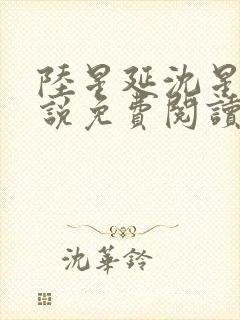 陸星延沈星
說免費閱讀
沈華鈴